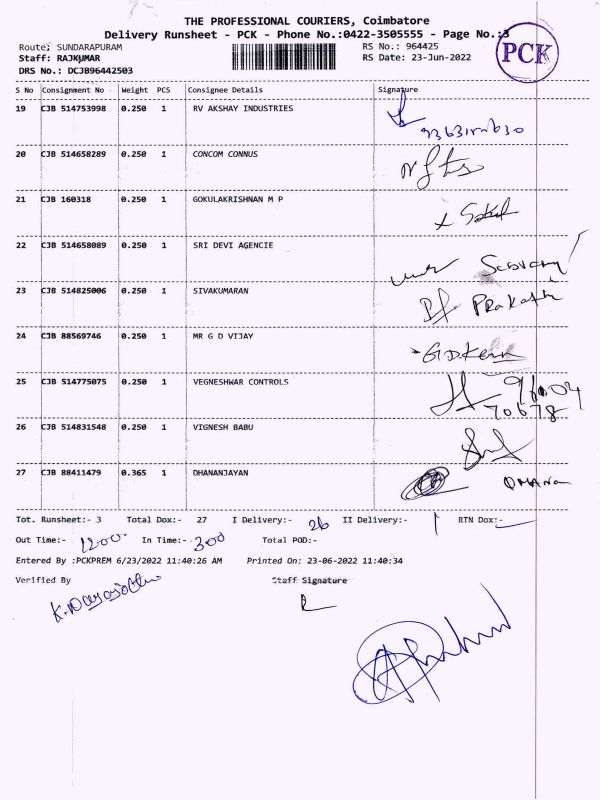 THE PROFESSIONAL COURIERS, Coimbatore
Delivery Runsheet - PCK - Phone No.:0422-3505555 - Page No.:3
PCK
Route: SUNDARAPURAM RS No.: 964425
Staff: RAJKUMAR RS Date: 23-Jun-2022
DRS No.: DCJB96442503
S No Consignment No Weight PCS Consignee Details Signature
19 CJB 514753998 0.250 1 RV AKSHAY INDUSTRIES
20 CJB 514658289 0.250 1 CONCOM CONNUS
21 CJB 160318 0.250 1 GOKULAKRISHNAN M P
22 CJB 514658089 0.250 1 SRI DEVI AGENCIE
23 CJB 514825006 0.250 1 SIVAKUMARAN
24 CJB 88569746 0.250 1 MR G D VIJAY
25 CJB 514775075 0.250 1 VEGNESHWAR CONTROLS
70678
26 CJB 514831548 0.250 1 VIGNESH BABU
27 CJB 88411479 0.365 1 DHANANJAYAN
Tot. Runsheet:- 3 Total Dox:- 27 I Delivery:- 26 II Delivery:- 1 RTN Dox:-
Out Time:- 1200 In Time:- 300 Total POD:-
Entered By :PCKPREM 6/23/2022 11:40:26 AM Printed On: 23-06-2022 11:40:34
Verified By Staff Signature